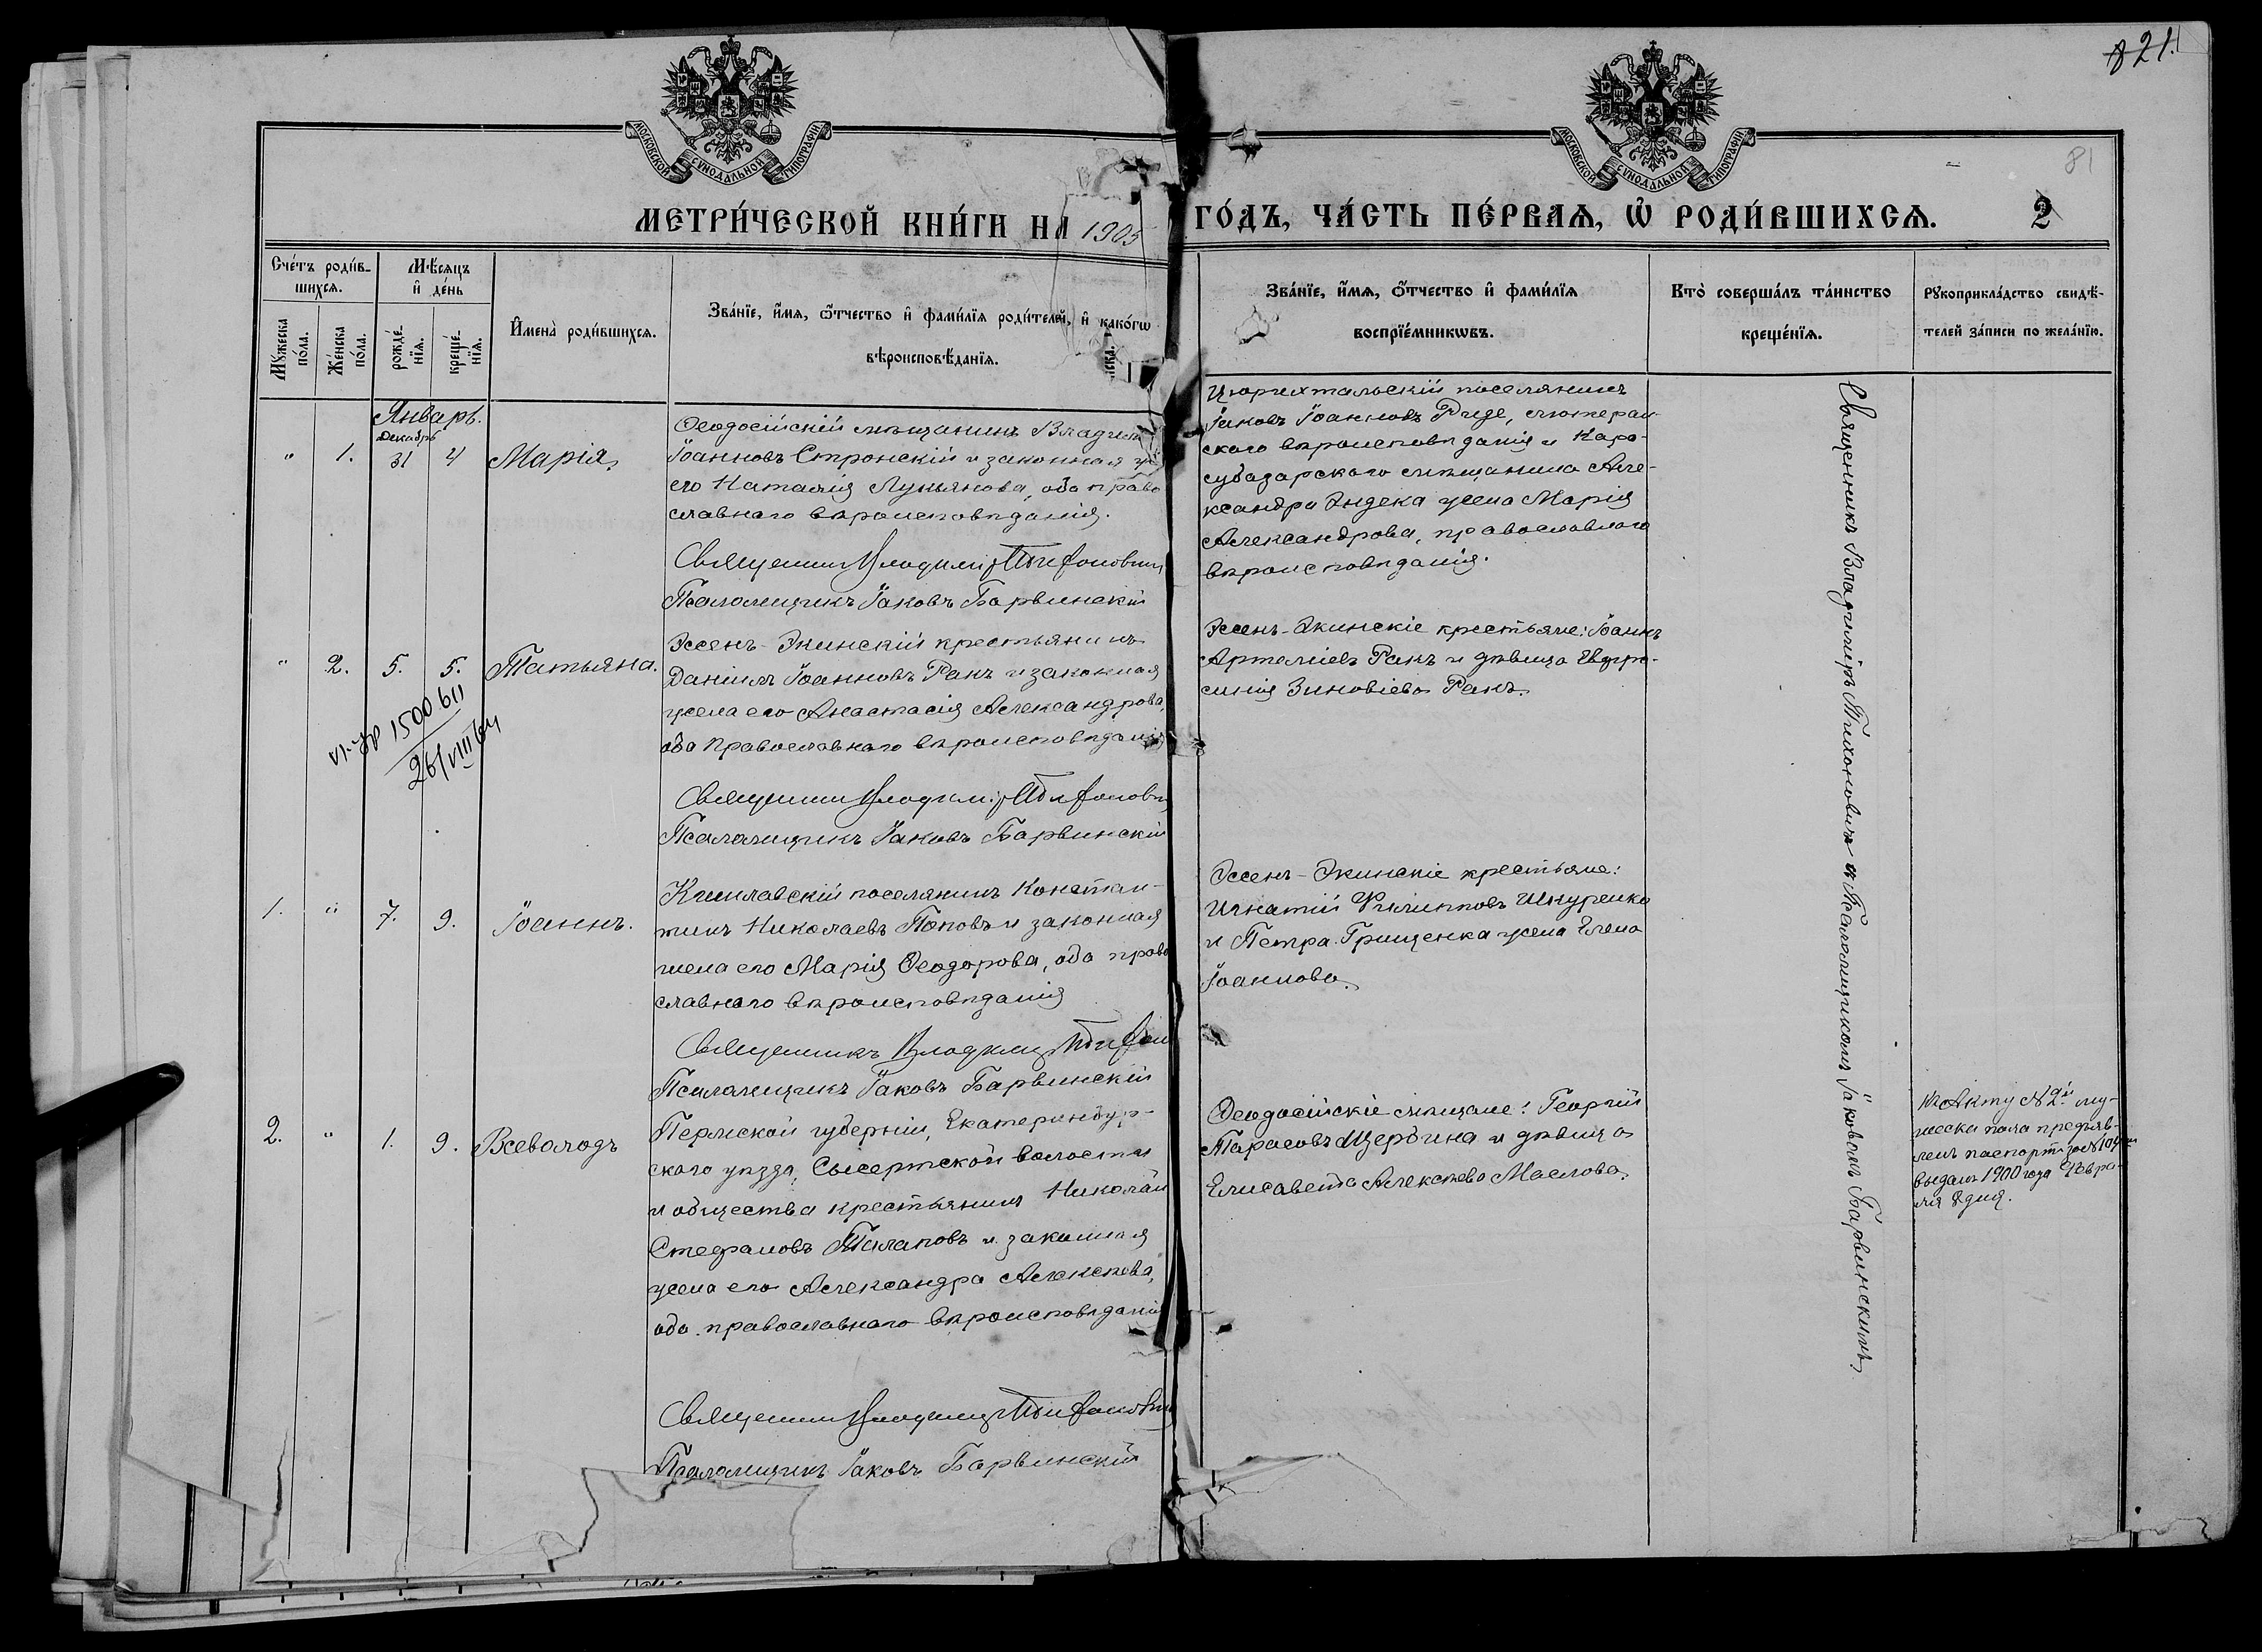 821.
81
МОСКОВСКОЙ СѴНОДАЛЬНОЙ ТИПОГРАФІИ
МОСКОВСКОЙ СѴНОДАЛЬНОЙ ТИПОГРАФІИ
МЕТРИ́ЧЕСКОЙ КНИ́ГИ НА 1905
ГО́ДЪ, ЧА́СТЬ ПЕ́РВАѦ, Ѽ РОДИ́ВШИХСѦ.
2
Сче́тъ роди́в-
шихсѧ.
Мѣ́сѧцъ
и҆ де́нь
Мꙋ́жеска
по́ла.
Же́нска
по́ла.
рожде́-
нїѧ.
креще́-
нїѧ.
И҆мена̀ роди́вшихсѧ.
Зва́нїе, и҆́мѧ, ѻ҆́тчество и҆ фами́лїѧ роди́телей, и҆ како́гѡ
вѣроисповѣ́данїѧ.
Зва́нїе, и҆́мѧ, ѻ҆́тчество и҆ фами́лїѧ
воспрїе́мникѡвъ.
Кто̀ соверша́лъ та́инство
креще́нїѧ.
Рꙋкоприкла́дство свидѣ́-
телей за́писи по жела́нїю.
Январь.
Декабрь
" 1. 31 4 Марія,
Ѳеодосійскій мѣщанинъ Владим
Іоанновъ Стронскій и законная
его Наталія Лукьянова, оба право
славнаго вѣроисповѣданія.
Священник Владимір Тихонович
Псаломщикъ Іаковъ Барвинскій
Цюрихтальскій поселянинъ
Іаковъ Іоанновъ Риде, лютеран-
скаго вѣроисповѣданія и Кара-
субазарскаго мѣщанина Але-
ксандра Эндека жена Марія
Александрова, православнаго
вѣроисповѣданія.
" 2. 5. 5. Татьяна.
1500 611
26/VIII 64
Эссенъ-Экинскій крестьянинъ
Даніилъ Іоанновъ Ракъ и законная
жена его Анастасія Александрова,
оба Православнаго вѣроисповѣданія
Священник Владимір Тихонович
Псаломщикъ Іаковъ Барвинскій
Эссенъ-Экинскіе крестьяне: Іоаннъ
Артеміевъ Ракъ и дѣвица Евфро-
синія Зиновіева Ракъ.
1. " 7. 9. Іоаннъ.
Кишлавскій поселянинъ Констан-
тинъ Николаевъ Поповъ и законная
жена его Марія Ѳеодорова, оба право
славнаго вѣроисповѣданія
Священникъ Владимір Тихон
Псаломщикъ Іаковъ Барвинскій
Эссенъ-Экинскіе крестьяне:
Игнатій Филипповъ Шкуренко
и Петра Грищенка жена Елена
Іоаннова.
2. " 1. 9. Всеволодъ
Пермской губерніи, Екатеринбур-
скаго уѣзда, Сысертской волости
и общества крестьянинъ Николай
Стефановъ Талаповъ и законная
жена его Александра Алексѣева,
оба православнаго вѣроисповѣданія
Священник Владимір Тихонович
Псаломщикъ Іаковъ Барвинскій
Ѳеодосійскіе мѣщане: Георгій
Тарасовъ Щербина и дѣвица
Елисавета Алексѣева Маслова.
Къ Акту №2й му-
жеска пола предъяв-
ленъ паспортъ за №
выданъ 1900 года Февра-
ля 8 дня.
Священникъ Владиміръ Тихоновичъ съ Псаломщикомъ Іаковомъ Барвинскимъ.